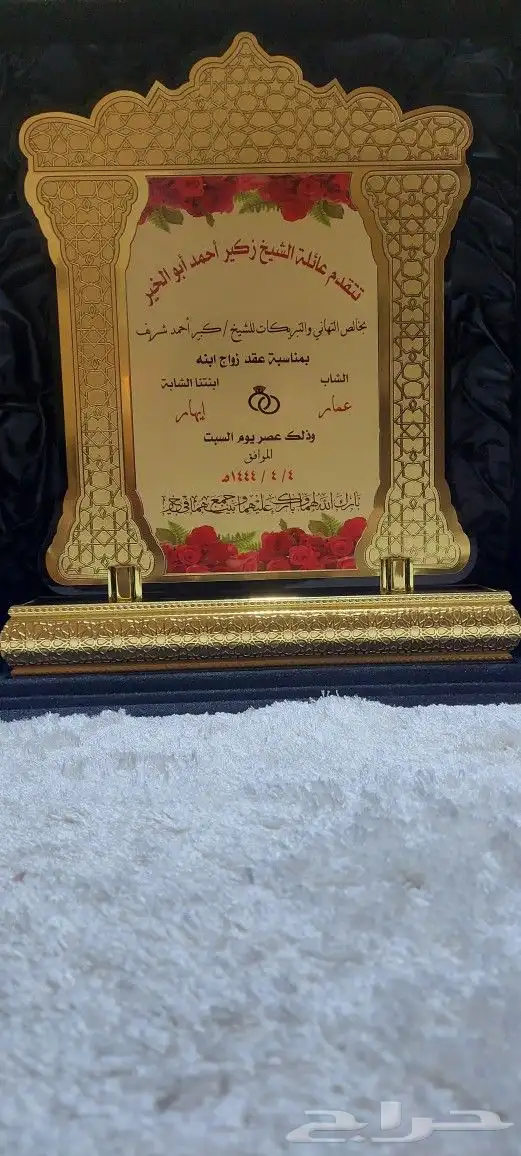 تتقدم عائلة الشيخ زكير أحمد أبو الخير
بخالص التهاني والتبريكات للشيخ / كبير أحمد شريف
بمناسبة عقد زواج ابنه
الشاب ابنتنا الشابة
عمار إيهار
وذلك عصر يوم السبت
الموافق
٤ / ٤ / ١٤٤٤هـ
بارك الله لهما وبارك عليهما وجمع بينهما في خير
حراج